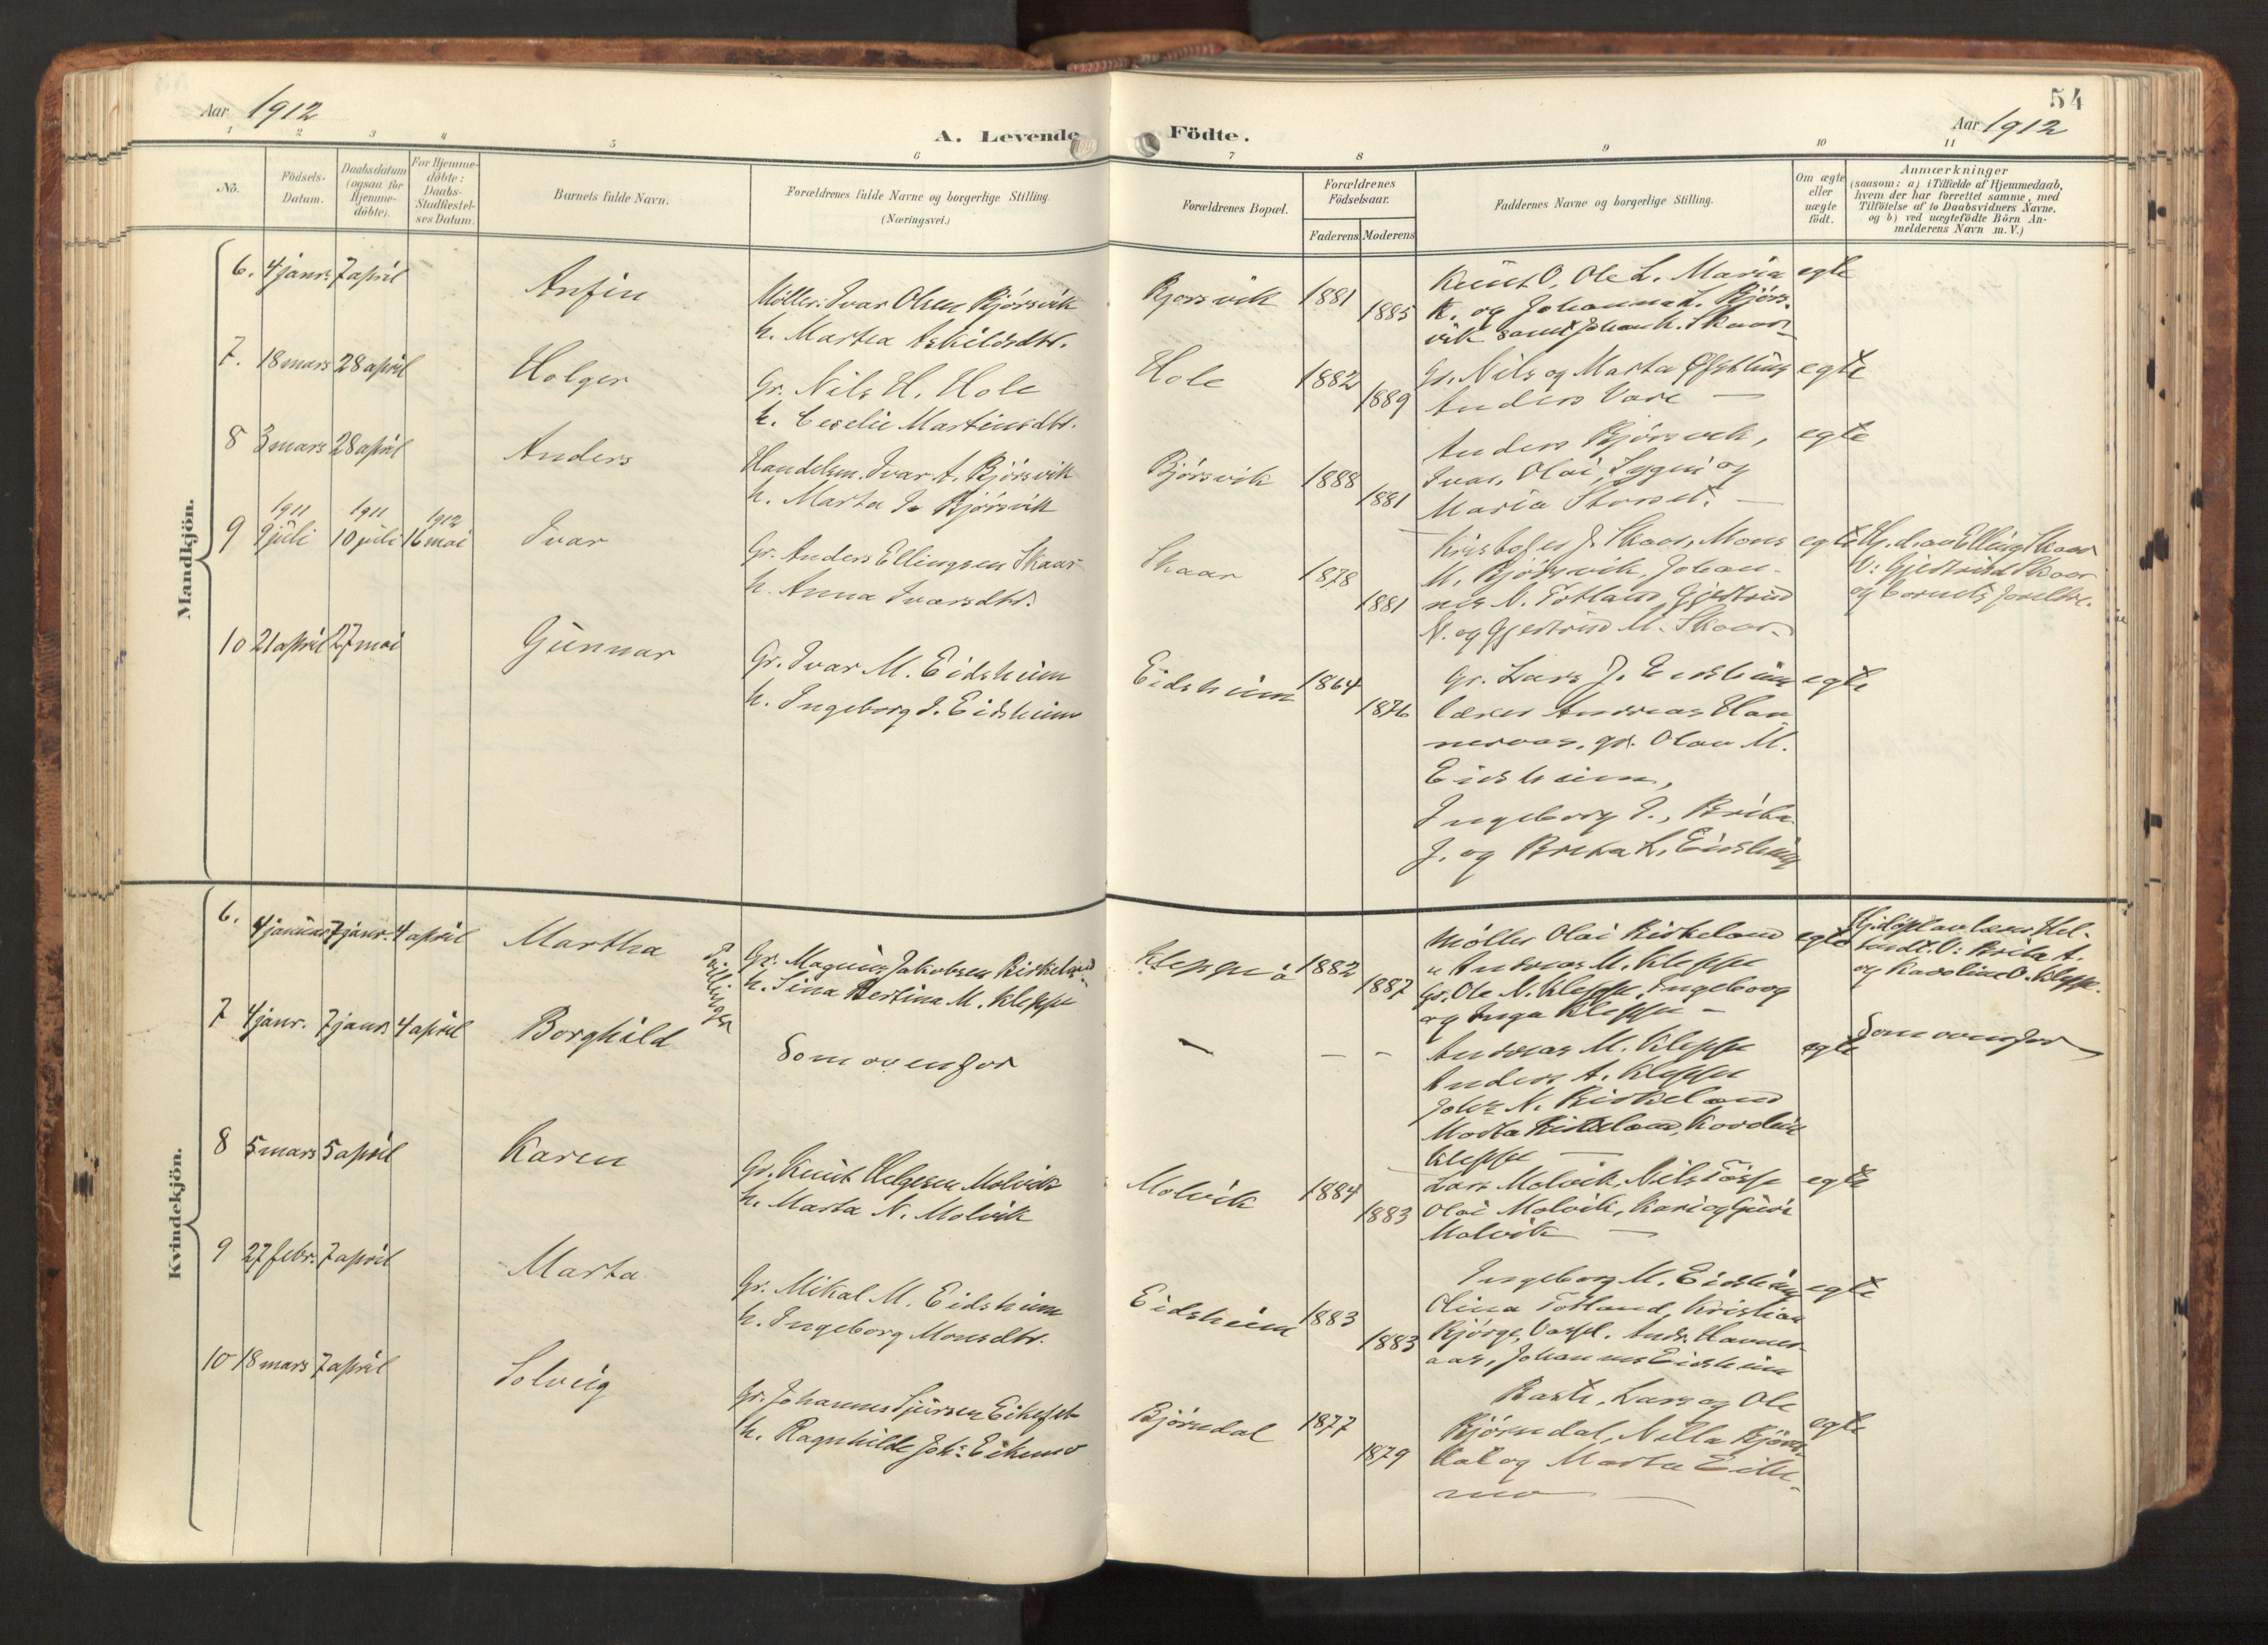 54
Aar 1912
A. Levende Födte.
Aar 1912
1 2 3 4 5 6 7 8 9 10 11
No.
Födsels-Datum.
Daabsdatum (ogsaa for Hjemme-döbte).
For Hjemme-döbte: Daabs-Stadfæstel-ses Datum.
Barnets fulde Navn.
Forældrenes fulde Navne og borgerlige Stilling.
(Næringsvei.)
Forældrenes Bopæl.
Forældrenes Födselsaar.
Faderens
Moderens
Faddernes Navne og borgerlige Stilling.
Om ægte eller uægte födt.
Anmærkninger
(saasom: a) i Tilfælde af Hjemmedaab,
hvem der har forrettet samme, med
Tilföielse af to Daabsvidners Navne,
og b) ved uægtefödte Börn An-
melderens Navn m. V.)
Mandkjön.
6. 4 janr. 7 april
Anfin
Møller Ivar Olsen Bjørsvik
h. Martea Askildsdtr.
Bjørsvik 1881
1885
Knut O, Ole L. Maria
K. og Johanna L. Bjørs-
vik samt Johan h. Skaar
egte
7. 18 mars 28 april
Holger
Gr. Nils H. Hole
h. Ceselie Martinsdtr.
Hole 1882
1889
Gr. Nils og Marta Øfsthus
Anders Vare —
egte
8 3 mars 28 april
Anders
Handelsm. Ivar A. Bjørsvik
h. Marta I. Bjørsvik
Bjørsvik 1888
1881
Anders Bjørsvik,
Ivar, Olai, og
Maria Storset. —
egte
1911 1911 1912
9 9 juli 10 juli 16 mai
Ivar
Gr. Anders Ellingsen Skaar
h. Anna Ivarsdtr.
Skaar 1878
1881
Kristofer J. Skaar, Mons
M. Bjørsvik, Johan-
nes N. Totland Gjertrud
N. og Gjertrud M. Skaar
egte
Hj. d. av Elling Skaar
V: Gjertrud Skaar
og barnets foreldre.
10 21 april 27 mai
Gunnar
Gr. Ivar M. Eidsheim
h. Ingeborg J. Eidsheim
Eidsheim 1864
1876
Gr. Lars J. Eidsheim
lærer Andreas Han
neraas, gr. Olav M.
Eidsheim,
Ingeborg I., Brita
J. og Brita L. Eidsheim
egte
Kvindekjön.
6. 4 januar 7 janr. 4 april
Martha
Tvillinger
Gr. Magnus Jakobsen Birkeland
h. Sina Bertina M. Kleppe
Kleppe 1882
1887
Møller Olai Birkeland
" Andreas M. Kleppe
Gr. Ole N. Kleppe, Ingeborg
og Inga Kleppe —
egte
Hj.døpt av lærer Hel-
V: Brita A.
og Karoline O. Kleppe.
7 4 janr. 7 janr 4 april
Borghild
Som ovenfor
— — —
Andreas M. Kleppe
Anders A. Kleppe
Johs N. Birkeland
Marta Birkeland, Karoline
Kleppe —
egte
Som ovenfor
8 5 mars 5 april
Karen
Gr. Knut Helgesen Molvik
h. Marta N. Molvik
Molvik 1884
1883
Lars Molvik, Nils Tosse
Olai Molvik, Kari og Guri
Molvik —
egte
9 27 febr. 7 april
Marta
Gr. Mikal M. Eidsheim
h. Ingeborg Monsdtr.
Eidsheim 1883
1883
Ingeborg M. Eidsheim
Olina Totland, Kristian
Bjørge, Andr. Hanner-
aas, Johannes Eidsheim
egte
10 18 mars 7 april
Solveig
Gr. Johannes Sjursen Eikefet
h. Ragnhilde Johs Eikemo
Bjørndal 1877
1879
Lars og Ole
Bjørndal, Nilla Bjørn-
dal og Marta Eike-
mo —
egte